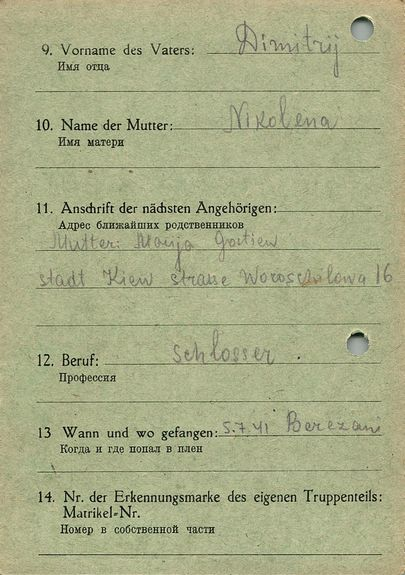 9. Vorname des Vaters: Dimitrij
Имя отца
10. Name der Mutter: Nikolena
Имя матери
11. Anschrift der nächsten Angehörigen:
Адрес ближайших родственников
Mutter:
stadt Kiew strasse 16
12. Beruf: Schlosser.
Профессия
13 Wann und wo gefangen: 5.7.41 Berezani
Когда и где попал в плен
14. Nr. der Erkennungsmarke des eigenen Truppenteils:
Matrikel-Nr.
Номер в собственной части